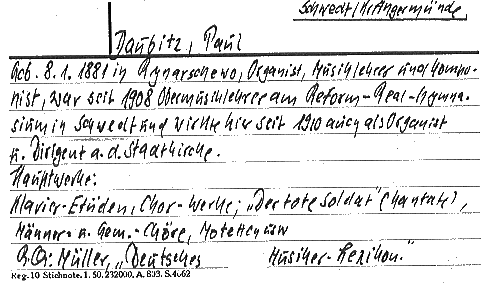 Schwedt/Kr. Angermünde
Daubitz, Paul
Geb. 8.1.1881 in Rynarschewo, Organist, Musiklehrer und Kompo-
nist, war seit 1908 Obermusiklehrer am Reform-Real-Gymna-
sium in Schwedt und wirkte hier seit 1910 auch als Organist
u. Dirigent a. d. Stadtkirche.
Hauptwerke:
Klavier-Etüden, Chor-Werke; „Der tote Soldat" (Kantate),
Männer- u. Gem.-Chöre, Motetten usw
Müller, „Deutsches Musiker-Lexikon."
Reg. 10 Stichnote. 1. 50. 232000. A. 833. S. 4062